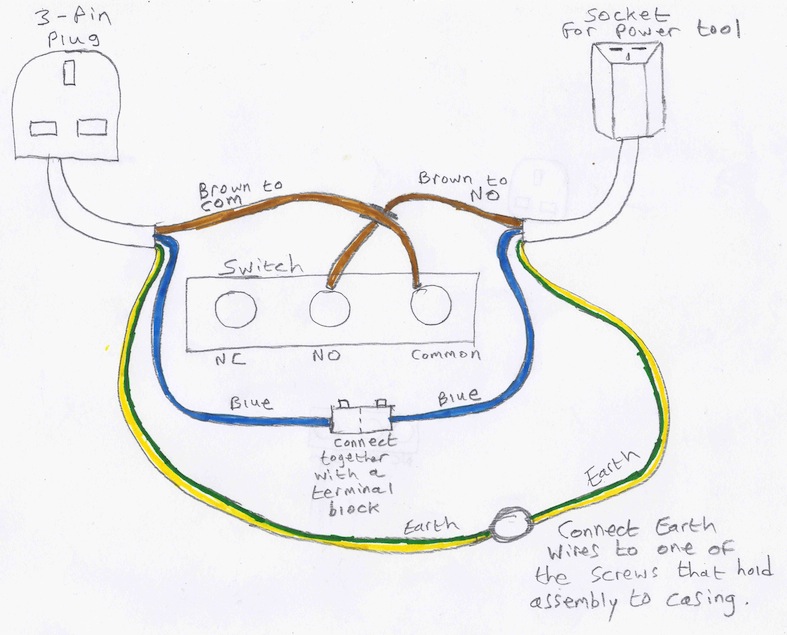 3-Pin
Plug
Socket
For Power tool
Brown to
com
Brown to
NO
Switch
NC
NO
Common
Blue
Blue
Connect
together
with a
terminal
block
Earth
Earth
Connect Earth
Wires to one of
the Screws that hold
assembly to casing.